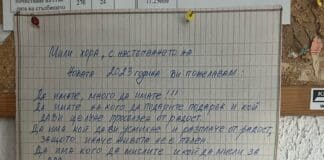 почистване на ст
лата на стълбищата
270
24
11.25000
Мили хора, с настъпването на
Новата 2023 година Ви пожелавам:
Да имате, много да имате!!!
Да имате на кого да подарите подарък и кой
да Ви целуне просълзен от радост.
Да има кой да Ви усмихне и разплаче от радост,
защото иначе живота не е пълен.
Да има кого да мислите и кой да мисли за